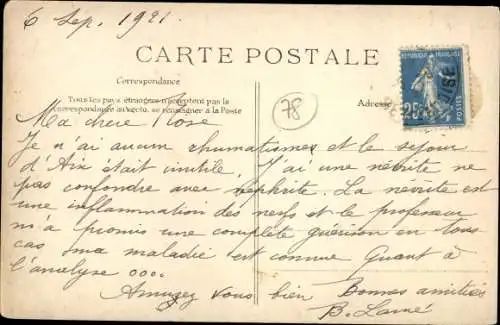 6 Sep. 1921
CARTE POSTALE
Correspondance
Tous les pays étrangers n'acceptent pas la
correspondance au recto. se renseigner à la Poste
Adresse
78
REPUBLIQUE FRANÇAISE
25c
POSTES
Ma chère Rose
Je n'ai aucun rhumatismes et le sejour
d'Aix était inutile. J'ai une névrite ne
pas confondre avec nephrite. La névrite est
une inflammation des nerfs et le professeur
m'a promis une complète guérison en tous
cas ma maladie est connue Quant à
l'analyse oooo
Amusez vous bien Bonnes amitiés
B.